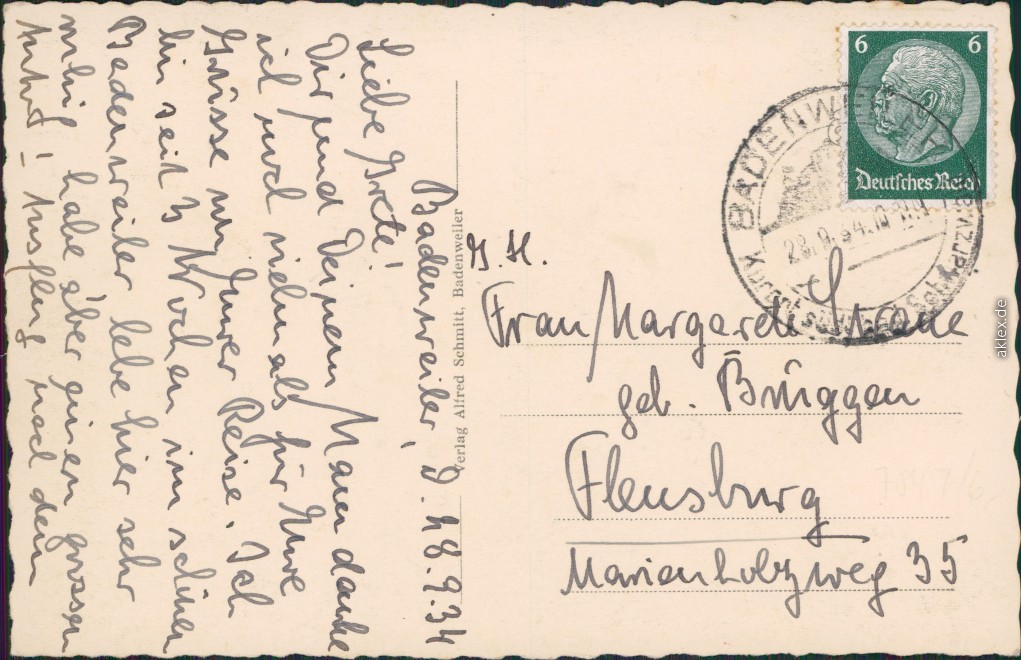 Badenweiler, d. 28.9.34
Liebe Grete!
Dir und Deinem Mann danke
ich noch vielmals für Eure
Grüsse von Eurer Reise. Ich
bin seit 3 Wochen im schönen
Badenweiler, lebe hier sehr
ruhig, habe aber einen grossen
Ausflug nach dem
Verlag Alfred Schmitt, Badenweiler
6 6
Deutsches Reich
BADENWEILER
28.9.34.10
Frau Margarete
geb. Brüggen
Flensburg
Marienholzweg 35
aklex.de